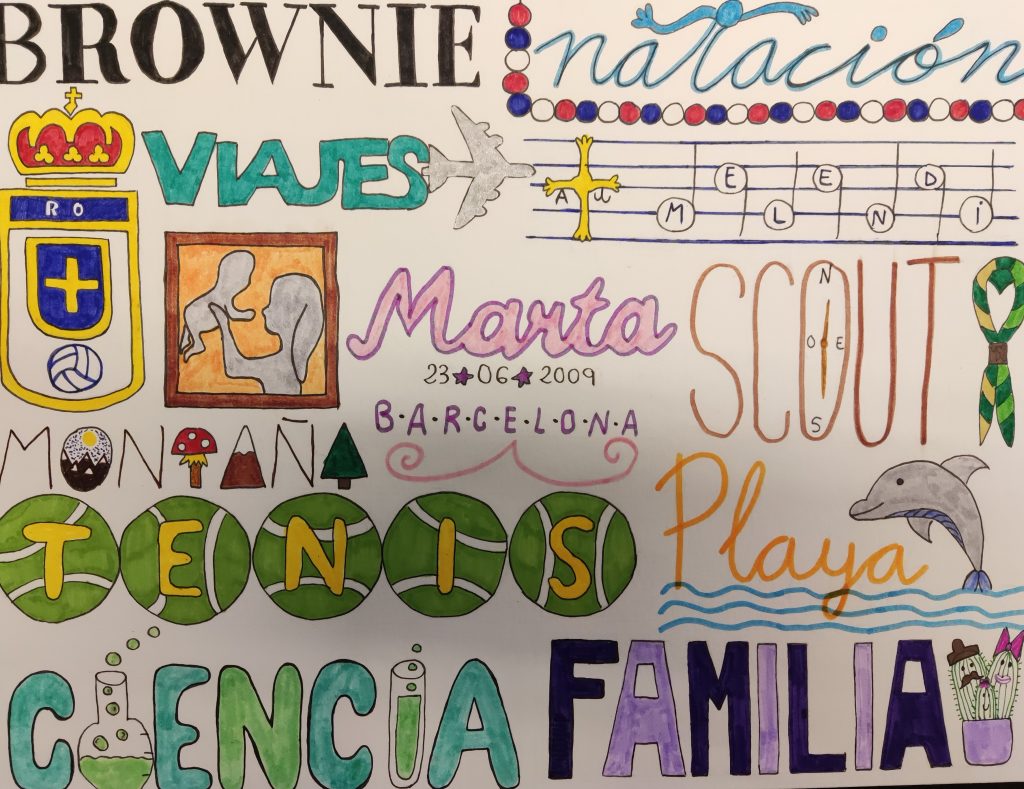 BROWNIE
natación
VIAJES
A W
M E L E N D i
R O
Marta
23 ★ 06 ★ 2009
B·A·R·C·E·L·O·N·A
SCOUT
N
O E
S
MONTAÑA
TENIS
Playa
CIENCIA
FAMILIA